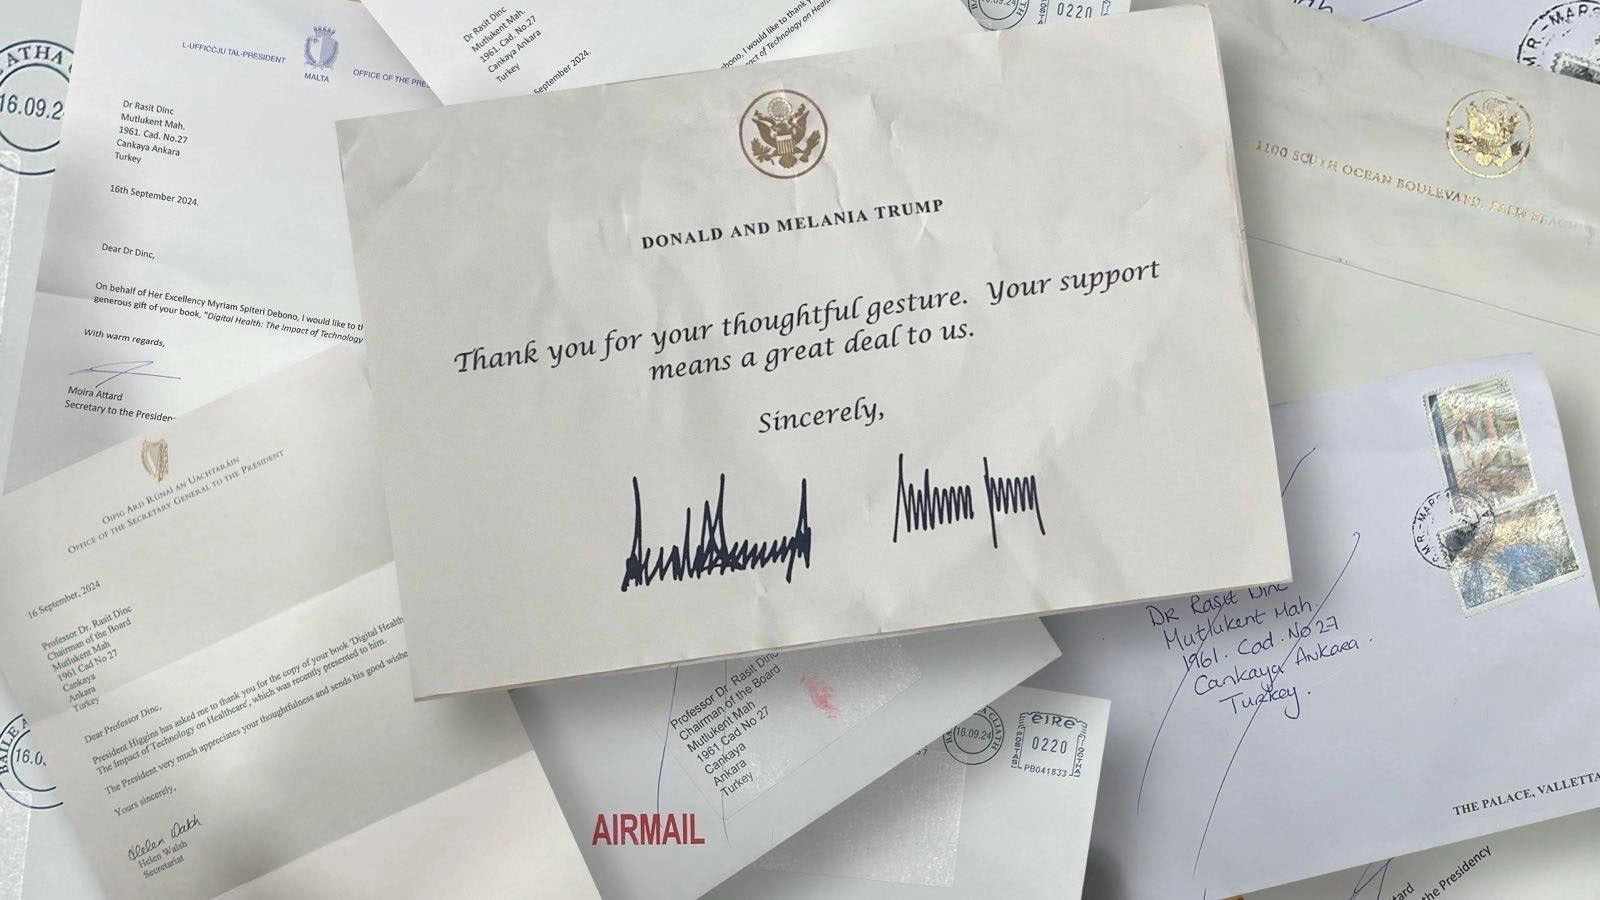 L-UFFIĊĊJU TAL-PRESIDENT
MALTA
OFFICE OF THE
Dr Rasit Dinc
Mutlukent Mah.
1961. Cad. No.27
Cankaya Ankara
Turkey
16th September 2024.
Dear Dr Dinc,
On behalf of Her Excellency Myriam Spiteri Debono, I would like to
generous gift of your book, "Digital Health: The Impact of Technology
With warm regards,
Moira Attard
Secretary to the
Dr Rasit Dinc
Mutlukent Mah.
1961. Cad. No.27
Cankaya Ankara
Turkey
September 2024.
I would like to thank
of Technology on
ATHA
16.09.2
0220
DONALD AND MELANIA TRUMP
Thank you for your thoughtful gesture. Your support
means a great deal to us.
Sincerely,
1100 SOUTH OCEAN BOULEVARD, PALM BEACH
OIFIG ARD RÚNAÍ AN UACHTARÁIN
OFFICE OF THE SECRETARY GENERAL TO THE PRESIDENT
16 September, 2024
Professor Dr. Rasit Dinc
Chairman of the Board
Mutlukent Mah
1961 Cad No 27
Cankaya
Ankara
Turkey
Dear Professor Dinc,
President Higgins has asked me to thank you for the copy of your book 'Digital Health
The Impact of Technology on Healthcare', which was recently presented to him.
The President very much appreciates your thoughtfulness and sends his good
Yours sincerely,
Helen Walsh
Helen Walsh
Secretariat
BAILE
16.0
Professor Dr. Rasit Dinc
Chairman of the Board
Mutlukent Mah
1961 Cad No 27
Cankaya
Ankara
Turkey
AIRMAIL
16.09.24
éire
0220
PB041833
Dr Rasit Dinc
Mutlukent Mah.
1961. Cad. No 27
Cankaya Ankara
Turkey.
THE PALACE, VALLETTA
the Presidency